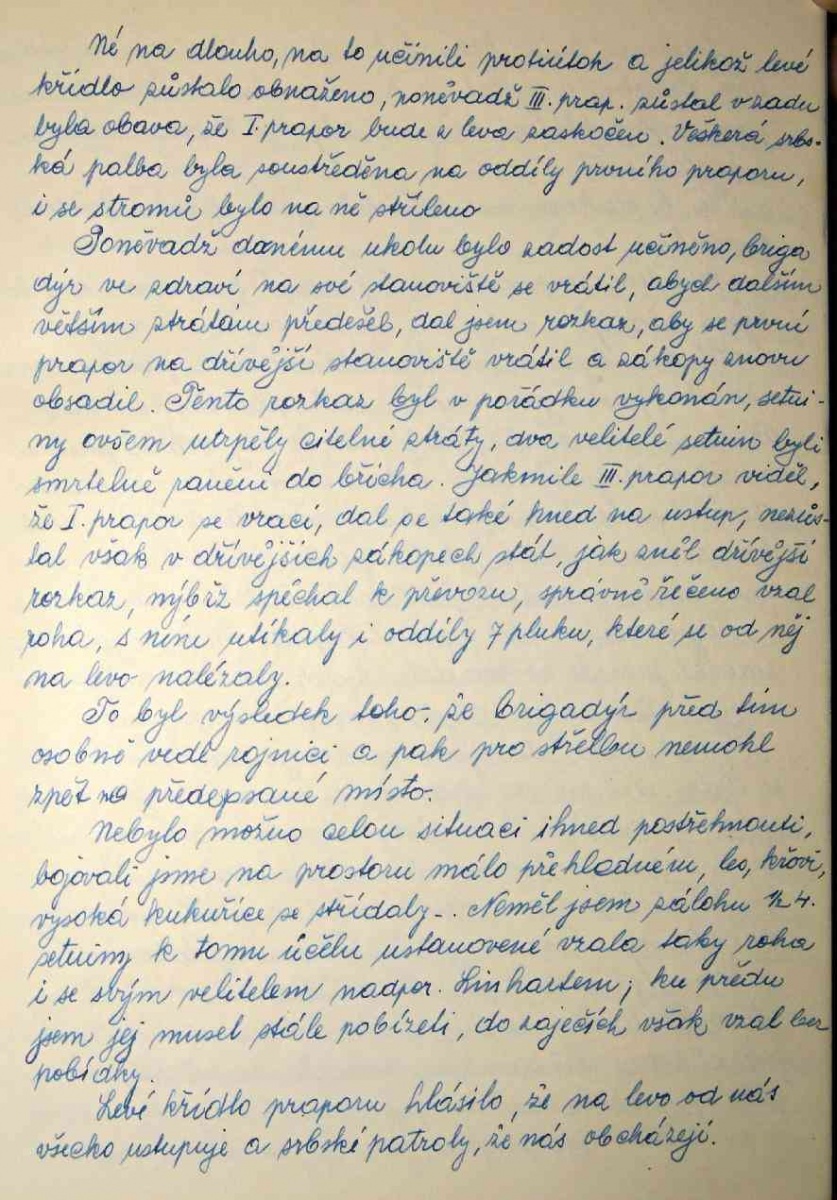 Né na dlouho, na to učinili protiútok a jelikož levé
křídlo zůstalo obnaženo, poněvadž III. prap. zůstal v zadu
byla obava, že I. prapor bude z leva zaskočen. Veškerá srbs-
ká palba byla soustředěna na oddíly prvního praporu,
i se stromů bylo na ně stříleno
Poněvadž danému ukolu bylo zadost učiněno, briga
dýr ve zdraví na své stanoviště se vrátil, abych dalším
větším ztrátám předešel, dal jsem rozkaz, aby se první
prapor na dřívější stanoviště vrátil a zákopy znovu
obsadil. Tento rozkaz byl v pořádku vykonán, setni-
ny ovšem utrpěly citelné ztráty, dva velitelé setnin byli
smrtelně raněni do břicha. Jakmile III. prapor viděl,
že I. prapor se vrací, dal se také hned na ustup, nezůs-
tal však v dřívějších zákopech stát, jak zněl dřívější
rozkaz, nýbrž spěchal k převozu, správně řečeno vzal
roha, s ním utíkaly i oddíly 7 pluku, které se od něj
na levo nalézaly.
To byl výsledek toho, že brigadýr před tím
osobně vedl rojnici a pak pro střelbu nemohl
zpět na předepsané místo.
Nebylo možno celou situaci ihned postřehnouti,
bojovali jsme na prostoru málo přehledném, les, křoví,
vysoká kukuřice se střídaly. Neměl jsem zálohu ½ 4.
setniny k tomu účelu ustanovené vzala taky roha
i se svým velitelem nadpor. Linhartem; ku předu
jsem jej musel stále pobízeti, do zaječích však vzal bez
pobídky.
Levé křídlo praporu hlásilo, že na levo od nás
všecko ustupuje a srbské patroly, že nás obcházejí.